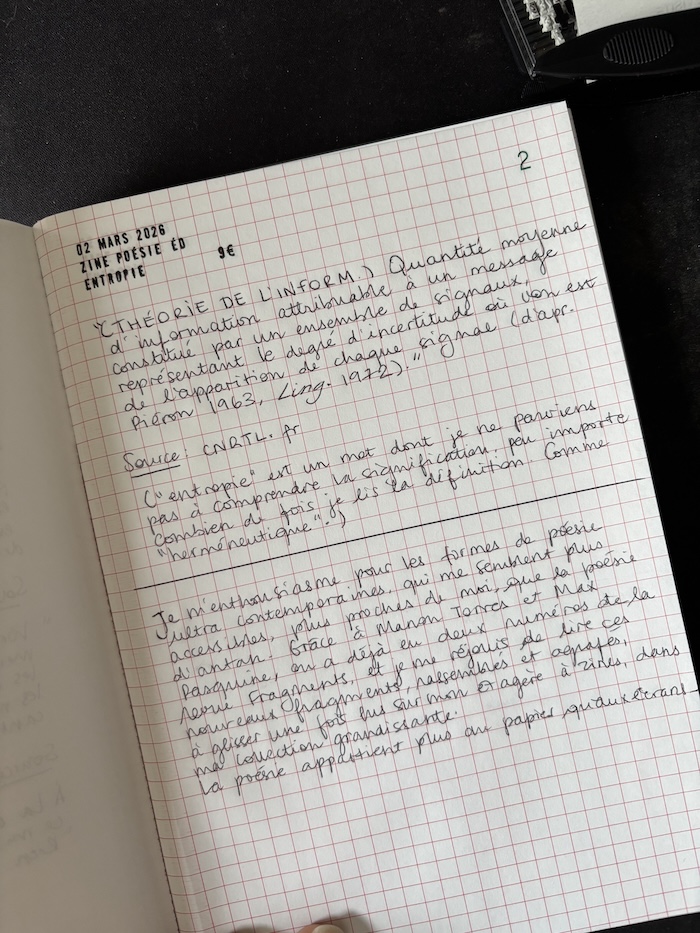 2
02 MARS 2026
ZINE POÉSIE ÉD
ENTROPIE
9€
"(THÉORIE DE L'INFORM.) Quantité moyenne
d'information attribuable à un message
constitué par un ensemble de signaux,
représentant le degré d'incertitude où l'on est
de l'apparition de chaque signal (d'apr.
Piéron 1963, Ling. 1972)."
Source : CNRTL.fr
("entropie" est un mot dont je ne parviens
pas à comprendre la signification, peu importe
combien de fois je lis sa définition. Comme
"herméneutique".)
Je m'enthousiasme pour les formes de poésie
ultra contemporaines, qui me semblent plus
accessibles, plus proches de moi, que la poésie
d'antan. Grâce à Manon Torres et Max
Pasquine, on a déjà eu deux numéros de la
revue Fragments, et je me réjouis de lire ces
nouveaux fragments, rassemblés et agrafés,
à glisser une fois lus sur mon étagère à zines, dans
ma collection grandissante.
La poésie appartient plus au papier qu'aux écrans